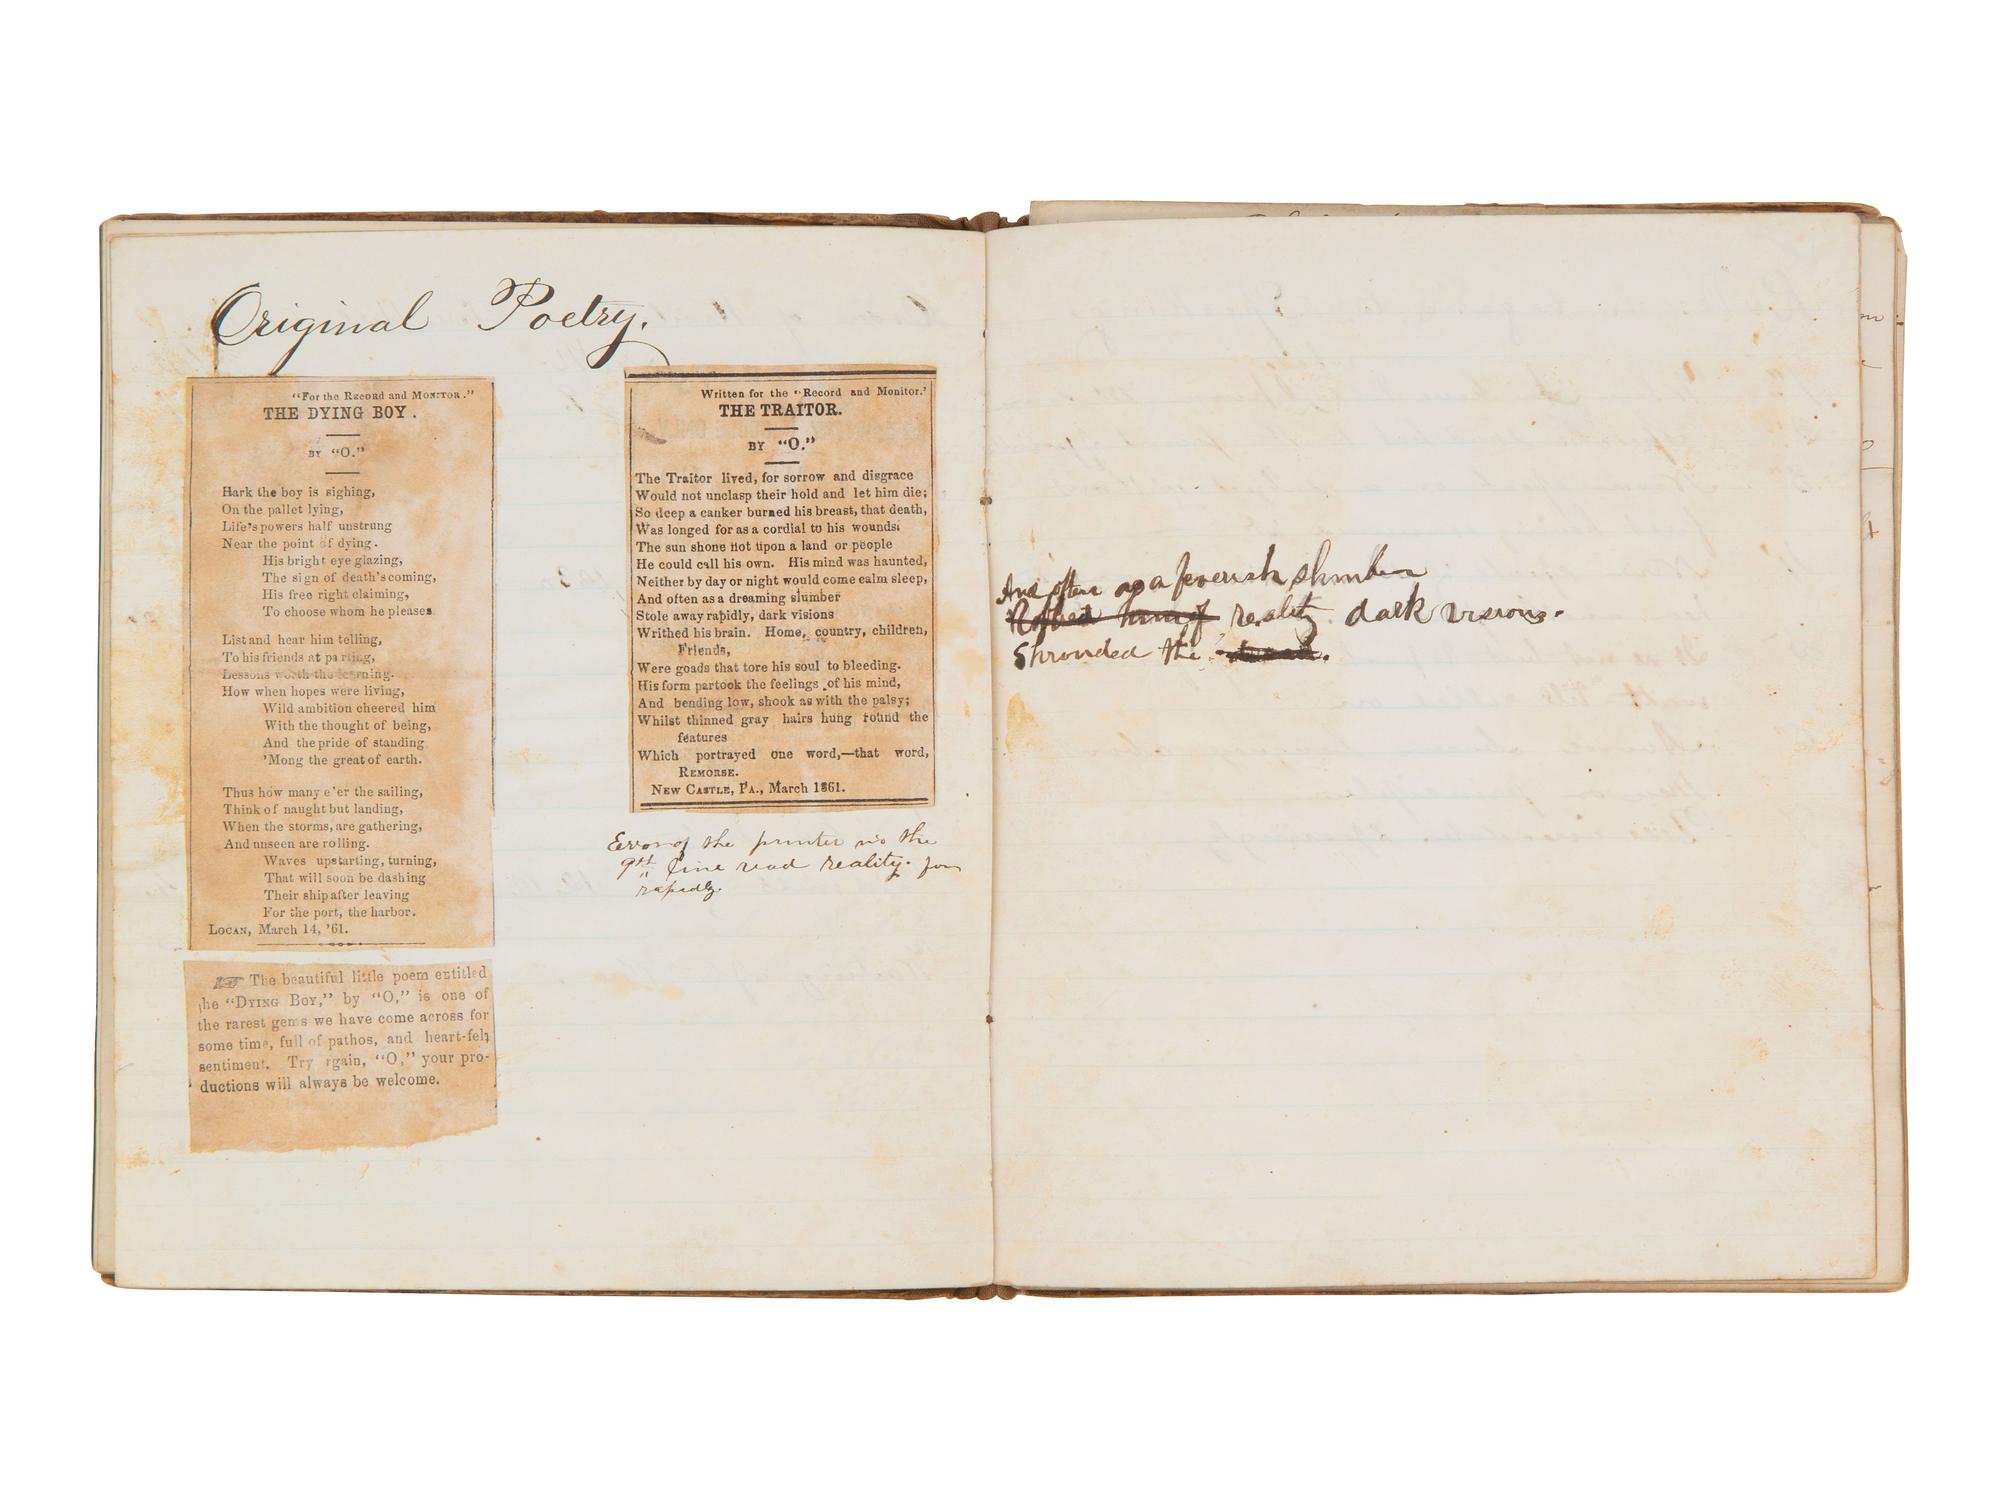 Original Poetry.
"For the Record and Monitor."
THE DYING BOY.
BY "O."
Hark the boy is sighing,
On the pallet lying,
Life's powers half unstrung
Near the point of dying.
His bright eye glazing,
The sign of death's coming,
His free right claiming,
To choose whom he pleases
List and hear him telling,
To his friends at parting,
Lessons worth the learning.
How when hopes were living,
Wild ambition cheered him
With the thought of being,
And the pride of standing
'Mong the great of earth.
Thus how many e'er the sailing,
Think of naught but landing,
When the storms, are gathering,
And unseen are rolling.
Waves upstarting, turning,
That will soon be dashing
Their ship after leaving
For the port, the harbor.
LOGAN, March 14, '61.
☞ The beautiful little poem entitled
he "DYING BOY," by "O," is one of
the rarest gems we have come across for
some time, full of pathos, and heart-felt
sentiment. Try again, "O," your pro-
ductions will always be welcome.
Written for the "Record and Monitor.'
THE TRAITOR.
BY "O."
The Traitor lived, for sorrow and disgrace
Would not unclasp their hold and let him die;
So deep a canker burned his breast, that death,
Was longed for as a cordial to his wounds:
The sun shone not upon a land or people
He could call his own. His mind was haunted,
Neither by day or night would come calm sleep,
And often as a dreaming slumber
Stole away rapidly, dark visions
Writhed his brain. Home, country, children,
Friends,
Were goads that tore his soul to bleeding.
His form partook the feelings of his mind,
And bending low, shook as with the palsy;
Whilst thinned gray hairs hung round the
features
Which portrayed one word,—that word,
REMORSE.
NEW CASTLE, PA., March 1861.
Error of the printer in the
9th line read reality. for
rapidly.
And often as a feverish slumber
Robbed him of reality dark visions.
Shrouded the